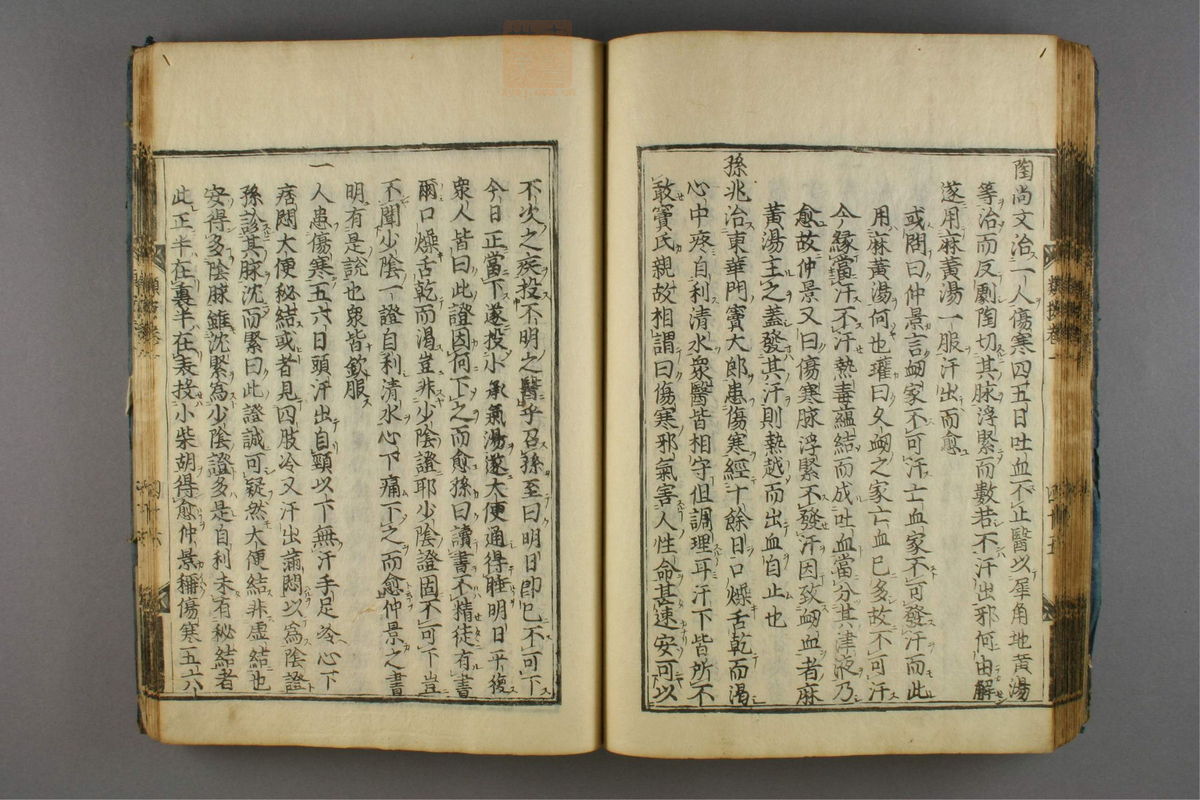 陶尚文治一人傷寒四五日吐血不止醫以犀角地黃湯
等治而反劇陶切其脉浮緊而數若不汗出邪何由解
遂用麻黃湯一服汗出而愈
或問曰仲景言衂家不可汗亡血家不可發汗而此
用麻黃湯何也瓘曰久衂之家亡血已多故不可汗
今縁當汗不汗熱毒蘊結而成吐血當分其津液乃
愈故仲景又曰傷寒脉浮緊不發汗因致衂血者麻
黃湯主之蓋發其汗則熱越而出血自止也
孫兆治東華門竇大郎患傷寒經十餘日口燥舌乾而渴
心中疼自利清水衆醫皆相守但調理耳汗下皆所不
敢竇氏親故相謂曰傷寒邪氣害人性命甚速安可以
不次之疾投不明之醫乎召孫至曰明日即已不可下
今日正當下遂投小承氣湯遂大便通得睡明日平復
衆人皆曰此證因何下之而愈孫曰讀書不精徒有書
爾口燥舌乾而渴豈非少陰證耶少陰證固不可下豈
不聞少陰一證自利清水心下痛下之而愈仲景之書
明有是說也衆皆欽服
一人患傷寒五六日頭汗出自頸以下無汗手足冷心下
痞悶大便秘結或者見四肢冷又汗出滿悶以爲陰證
孫診其脉沈而緊曰此證誠可疑然大便結非虛結也
安得多陰脉雖沈緊爲少陰證多是自利未有秘結者
此正半在裏半在表投小柴胡得愈仲景稱傷寒五六